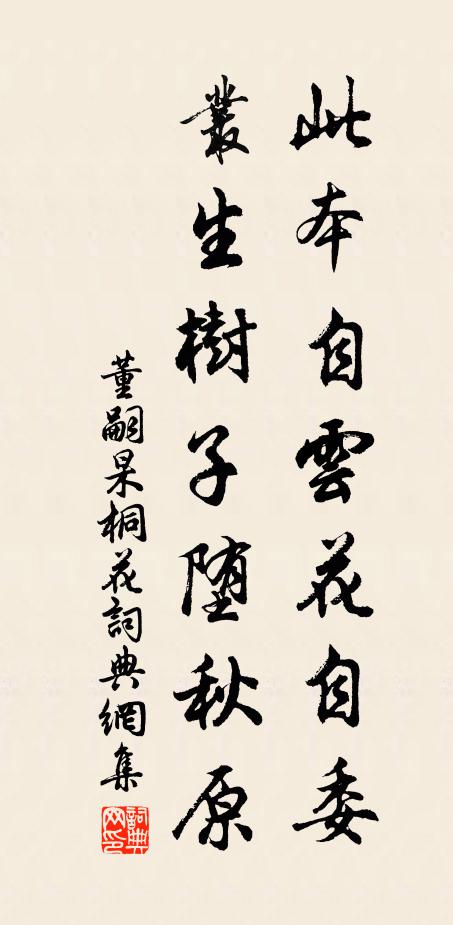 此本自雲花自委
叢生樹子堕秋原
董嗣杲桐花詞典網集
詞典网印